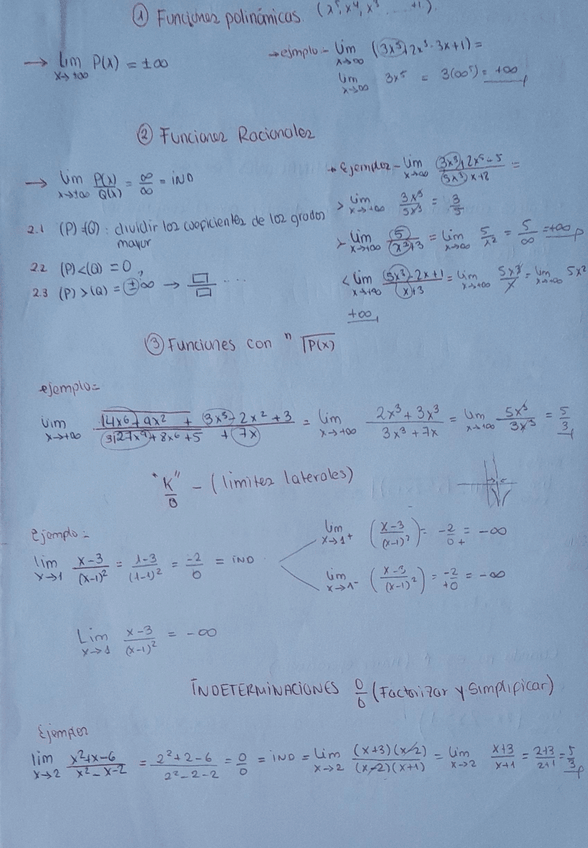 ① Funciones polinómicas. (x⁵, x⁴, x³ ... +1).
→ lim x→±∞ P(x) = ±∞
→ ejemplo - lim x→∞ (3x⁵+2x²-3x+1) =
lim x→∞ 3x⁵ = 3(∞⁵) = +∞
② Funciones Racionales
→ lim x→±∞ P(x)/Q(x) = ∞/∞ = IND
→ Ejemplos - lim x→∞ (3x⁵+2x⁵-5)/(5x³)x+2 =
2.1 (P)=(Q): dividir los coeficientes de los grados
mayor
> lim x→+∞ 3x⁵/5x³ = 3/5
> lim x→+∞ 5/(x²+3) = lim x→∞ 5/x² = 5/∞ = +∞
2.2 (P)<(Q) = 0,
2.3 (P)>(Q) = ±∞ → □/□ ...
< lim x→+∞ (5x³-2x+1)/(x+3) = lim x→+∞ 5x³/x = lim x→+∞ 5x²
+∞
③ Funciones con ⁿ√P(x)
ejemplo=
lim x→+∞ (√4x⁶+9x² + 3x³-2x²+3)/(3√27x⁹+8x⁶+5 + 7x) = lim x→+∞ (2x³+3x³)/(3x³+7x) = lim x→+∞ 5x³/3x³ = 5/3
"K/0" - (límites laterales)
Ejemplo =
lim x→1 (x-3)/(x-1)² = (1-3)/(1-1)² = -2/0 = IND
lim x→1⁺ ((x-3)/(x-1)²) = -2/0+ = -∞
lim x→1⁻ ((x-3)/(x-1)²) = -2/+0 = -∞
Lim x→1 (x-3)/(x-1)² = -∞
INDETERMINACIONES 0/0 (Factorizar y Simplificar)
Ejemplos
lim x→2 (x²+x-6)/(x²-x-2) = (2²+2-6)/(2²-2-2) = 0/0 = IND = lim x→2 (x+3)(x-2)/(x-2)(x+1) = lim x→2 (x+3)/(x+1) = (2+3)/(2+1) = 5/3